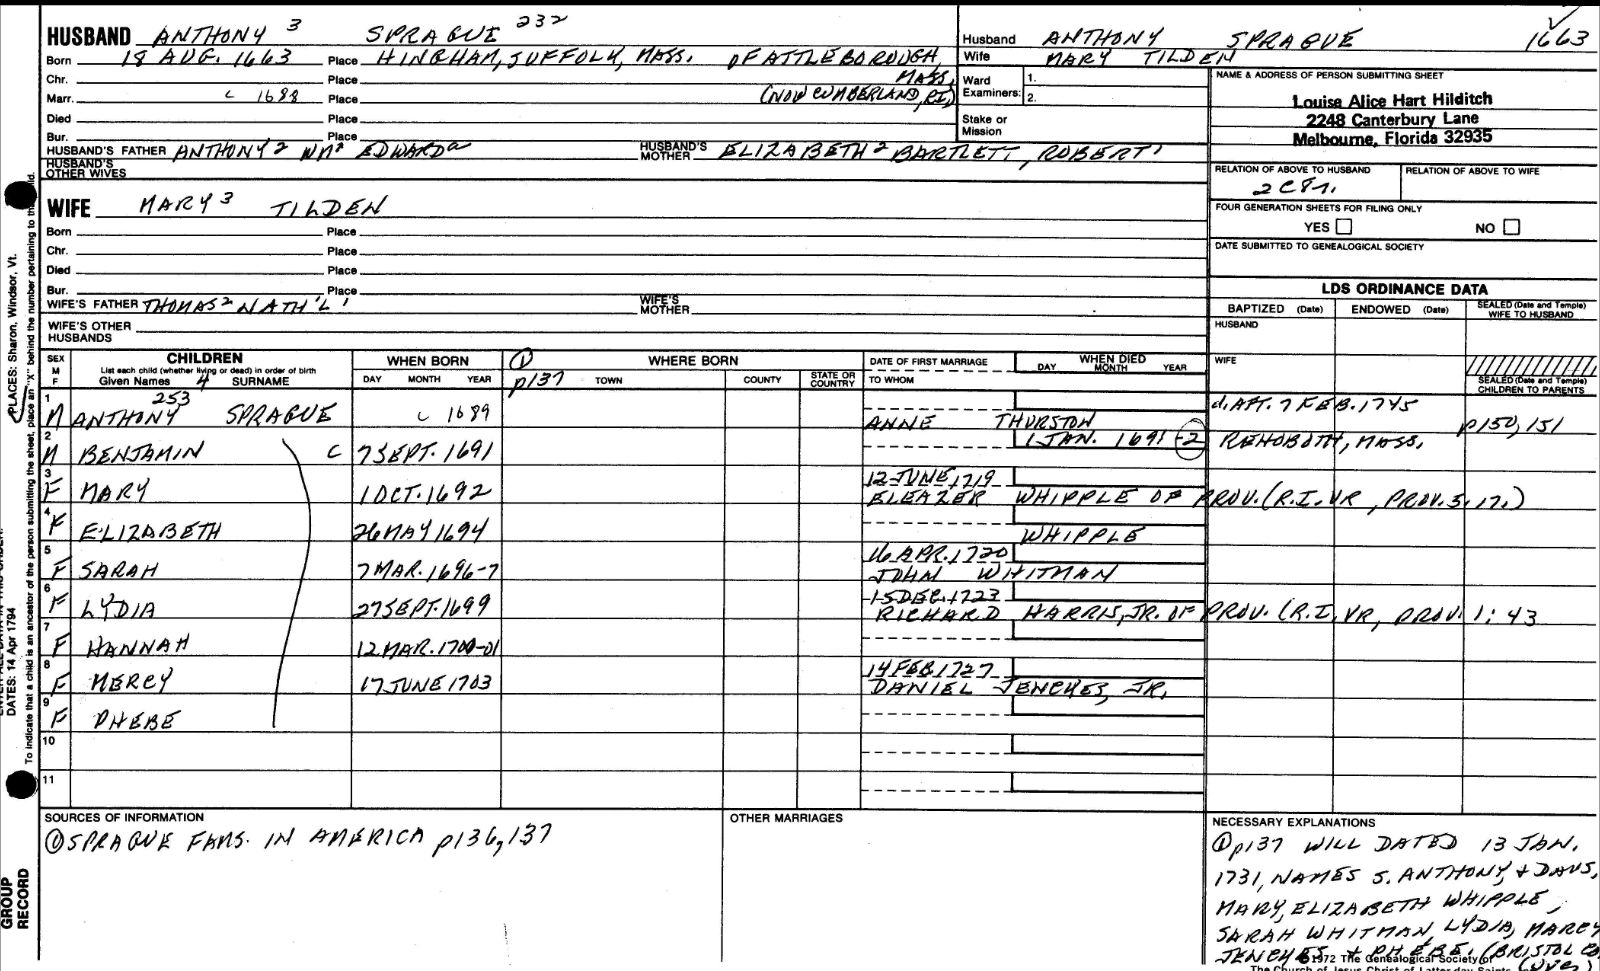 HUSBAND ANTHONY 3 SPRAGUE 232
Born 18 AUG. 1663 Place HINGHAM, SUFFOLK, MASS. OF ATTLEBOROUGH,
Chr. Place MASS.
Marr. c 1688 Place (NOW CUMBERLAND, RI)
Died Place
Bur. Place
HUSBAND'S FATHER ANTHONY 2 WM a EDWARD a HUSBAND'S MOTHER ELIZABETH 2 BARTLETT, ROBERT 1
HUSBAND'S OTHER WIVES
Husband ANTHONY SPRAGUE 1663
Wife MARY TILDEN
Ward Examiners: 1.
2.
Stake or Mission
NAME & ADDRESS OF PERSON SUBMITTING SHEET
Louise Alice Hart Hilditch
2248 Canterbury Lane
Melbourne, Florida 32935
RELATION OF ABOVE TO HUSBAND RELATION OF ABOVE TO WIFE
FOUR GENERATION SHEETS FOR FILING ONLY
YES NO
DATE SUBMITTED TO GENEALOGICAL SOCIETY
WIFE MARY 3 TILDEN
Born Place
Chr. Place
Died Place
Bur. Place
WIFE'S FATHER THOMAS 2 NATH'L 1 WIFE'S MOTHER
WIFE'S OTHER HUSBANDS
LDS ORDINANCE DATA
BAPTIZED (Date) ENDOWED (Date) SEALED (Date and Temple) WIFE TO HUSBAND
HUSBAND
WIFE
SEALED (Date and Temple) CHILDREN TO PARENTS
SEX M F
CHILDREN
List each child (whether living or dead) in order of birth
Given Names 4 SURNAME
WHEN BORN
DAY MONTH YEAR
① p137 WHERE BORN
TOWN COUNTY STATE OR COUNTRY
DATE OF FIRST MARRIAGE
TO WHOM
WHEN DIED
DAY MONTH YEAR
1 M 253 ANTHONY SPRAGUE c 1689 ANNE THURSTON d. AFT. 7 FEB. 1745 p150, 151
2 M BENJAMIN C 7 SEPT. 1691 1 JAN. 1691-2 REHOBOTH, MASS.
3 F MARY 1 OCT. 1692 12 JUNE, 1719 ELEAZER WHIPPLE OF PROV. (R.I. VR, PROV. 3. 17.)
4 F ELIZABETH 26 MAY 1694 WHIPPLE
5 F SARAH 7 MAR. 1696-7 16 APR. 1720 JOHN WHITMAN
6 F LYDIA 27 SEPT. 1699 15 DEC. 1723 RICHARD HARRIS, JR. OF PROV. (R.I. VR, PROV. 1: 43
7 F HANNAH 12 MAR. 1700-01
8 F MERCY 17 JUNE 1703 14 FEB. 1727 DANIEL JENCHES, JR.
9 F PHEBE
10
11
SOURCES OF INFORMATION
① SPRAGUE FAMS. IN AMERICA p136, 137
OTHER MARRIAGES
NECESSARY EXPLANATIONS
① p137 WILL DATED 13 JAN.
1731, NAMES S. ANTHONY, & DAUS,
MARY, ELIZABETH WHIPPLE,
SARAH WHITMAN, LYDIA, MARCY
JENCHES & PHEBE. (BRISTOL CO.
©1972 The Genealogical Society of
The Church of Jesus Christ of Latter-day Saints
PLACES: Sharon, Windsor, Vt.
DATES: 14 Apr 1794
To indicate that a child is an ancestor of the person submitting the sheet, place an "X" behind the number pertaining to that child.
GROUP RECORD